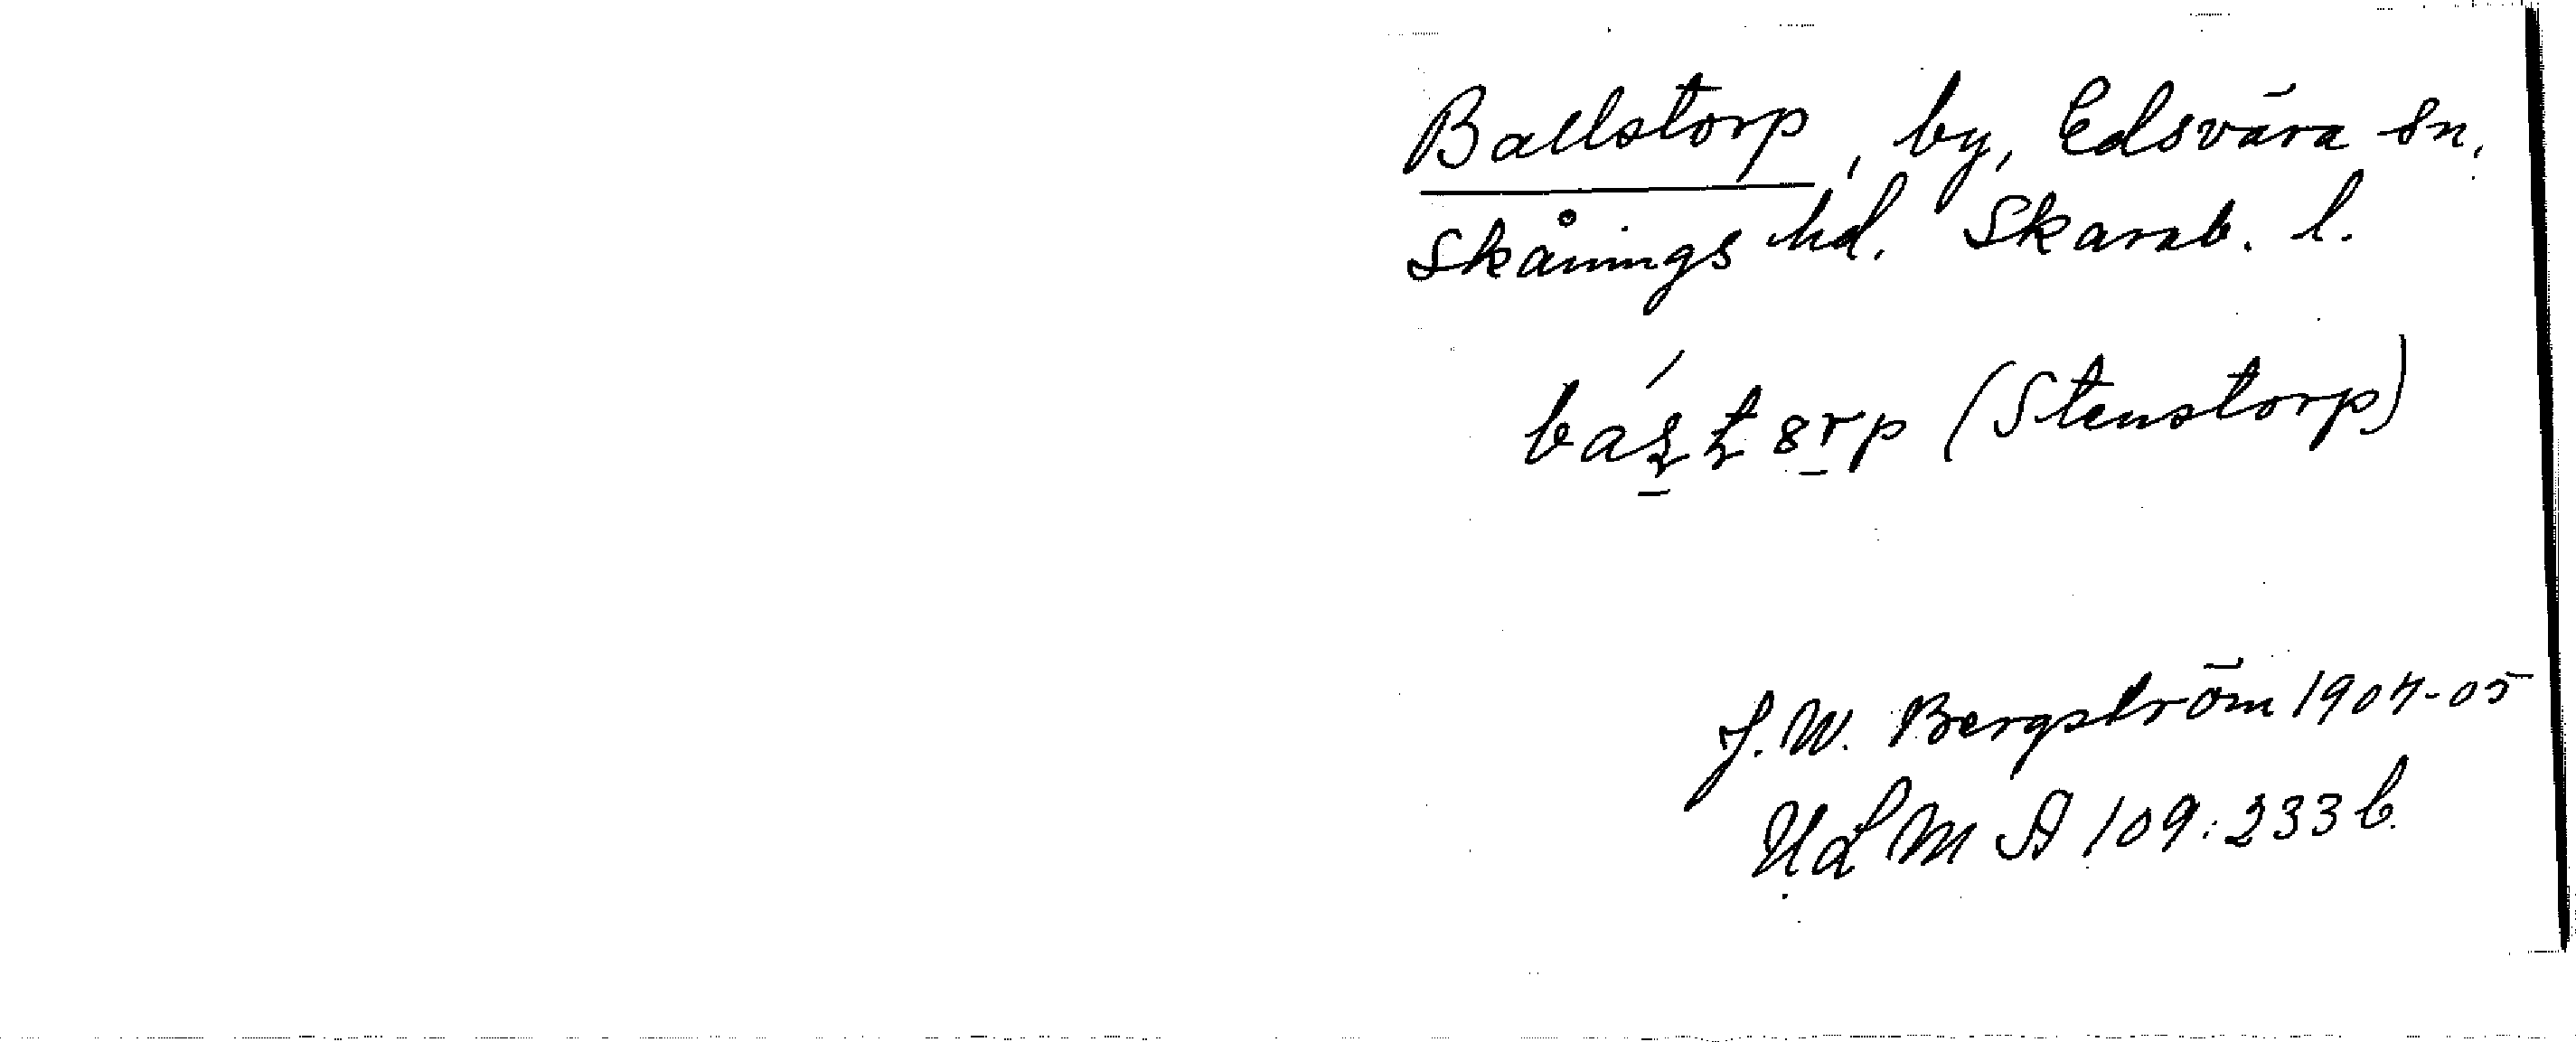 Ballstorp, by, Edsvära sn.
Skånings hd. Skarab. l.
(Stenstorp)
J. W. Bergström 1904-05
ULMA 109:233 b.